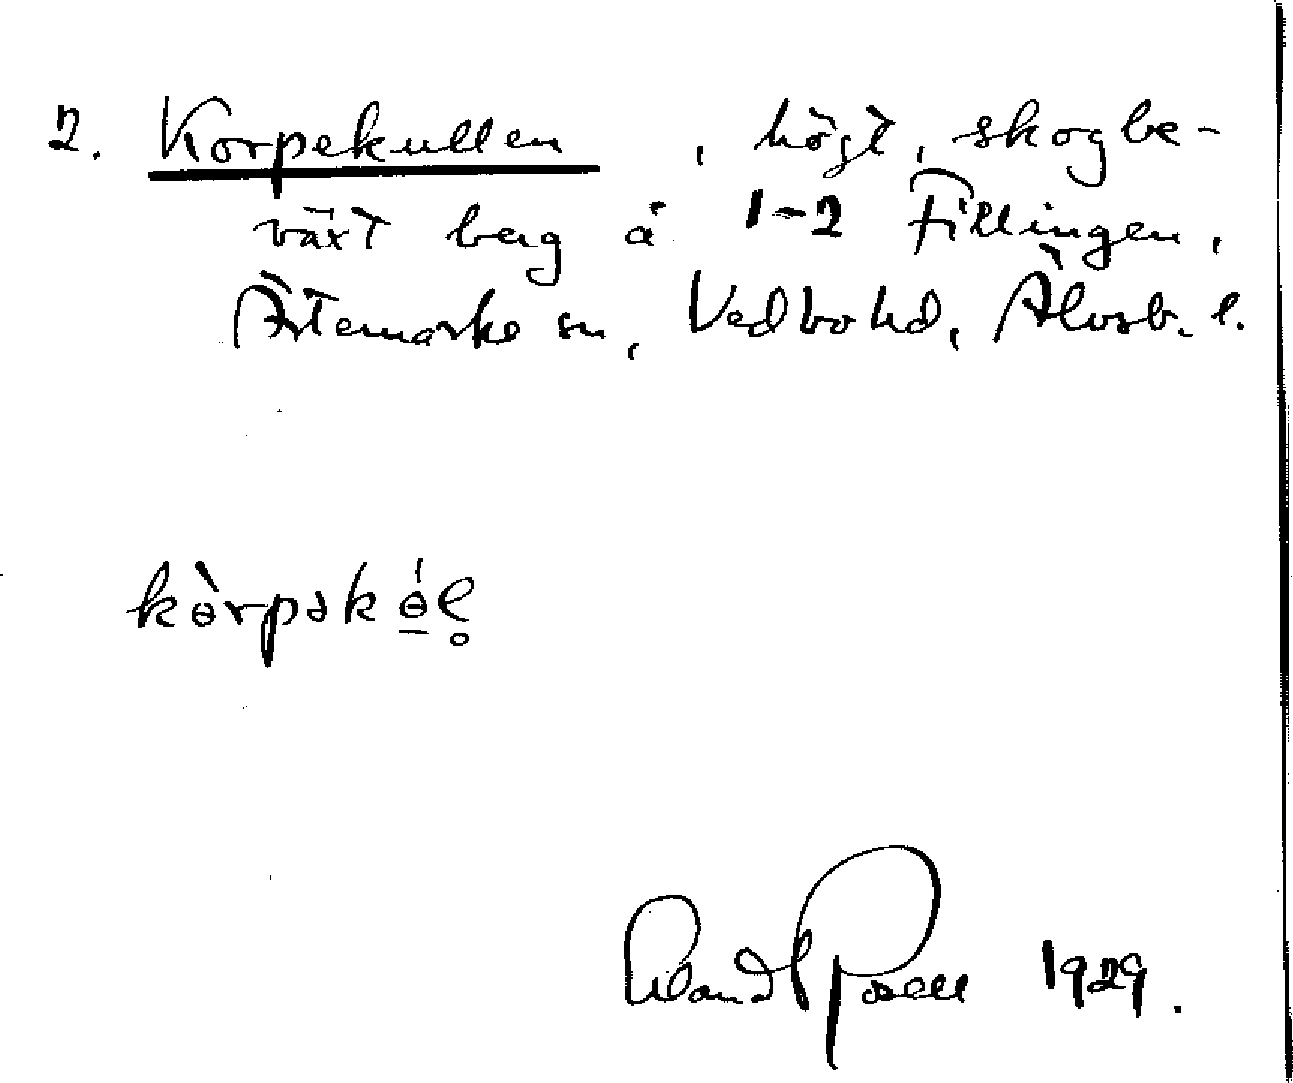 2. Korpekullen, högt, skogbe-
växt berg å 1-2 Fillingen,
Ärtemarke sn, Vedbo hd, Älvsb. l.
kɵ̀rpəkɵ́l̥
Rosell 1929.